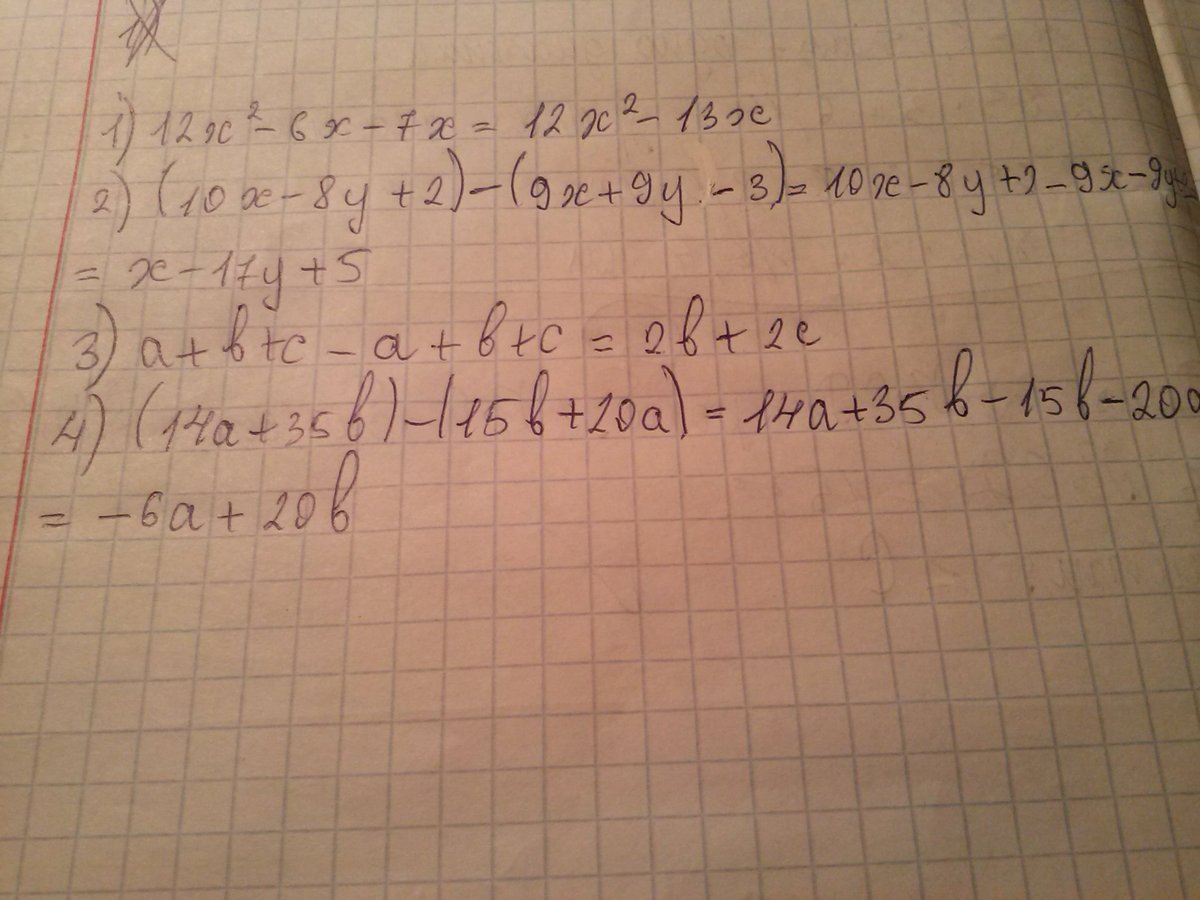 1) 12x² - 6x - 7x = 12x² - 13x
2) (10x - 8y + 2) - (9x + 9y - 3) = 10x - 8y + 2 - 9x - 9y
= x - 17y + 5
3) a + b + c - a + b + c = 2b + 2c
4) (14a + 35b) - (15b + 20a) = 14a + 35b - 15b - 20a
= -6a + 20b